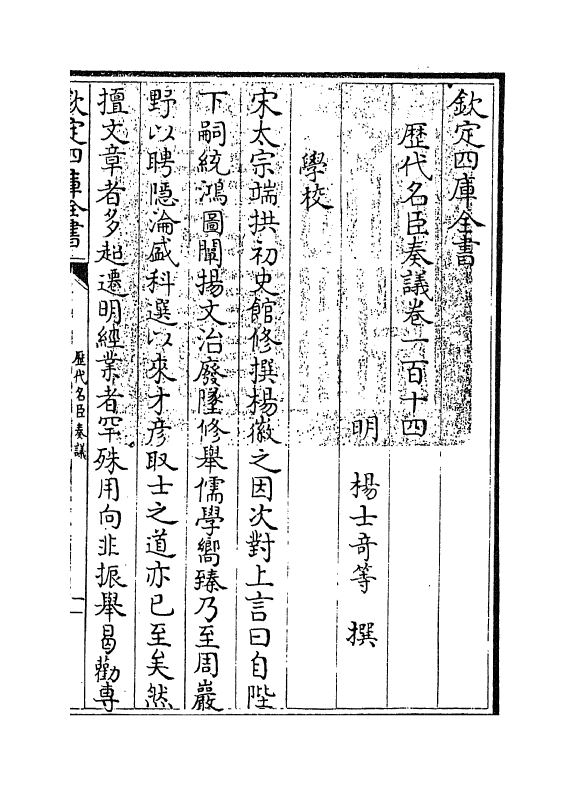 欽定四庫全書
歴代名臣奏議卷一百十四
明　楊士奇等　撰
學校
宋太宗端拱初史館修撰楊徽之因次對上言曰自陛
下嗣統鴻圖闡揚文治廢墜修舉儒學嚮臻乃至周巖
野以聘隱淪盛科選以來才彦取士之道亦已至矣然
擅文章者多超遷明經業者罕殊用向非振舉曷勸專
欽定四庫全書
歴代名臣奏議
一